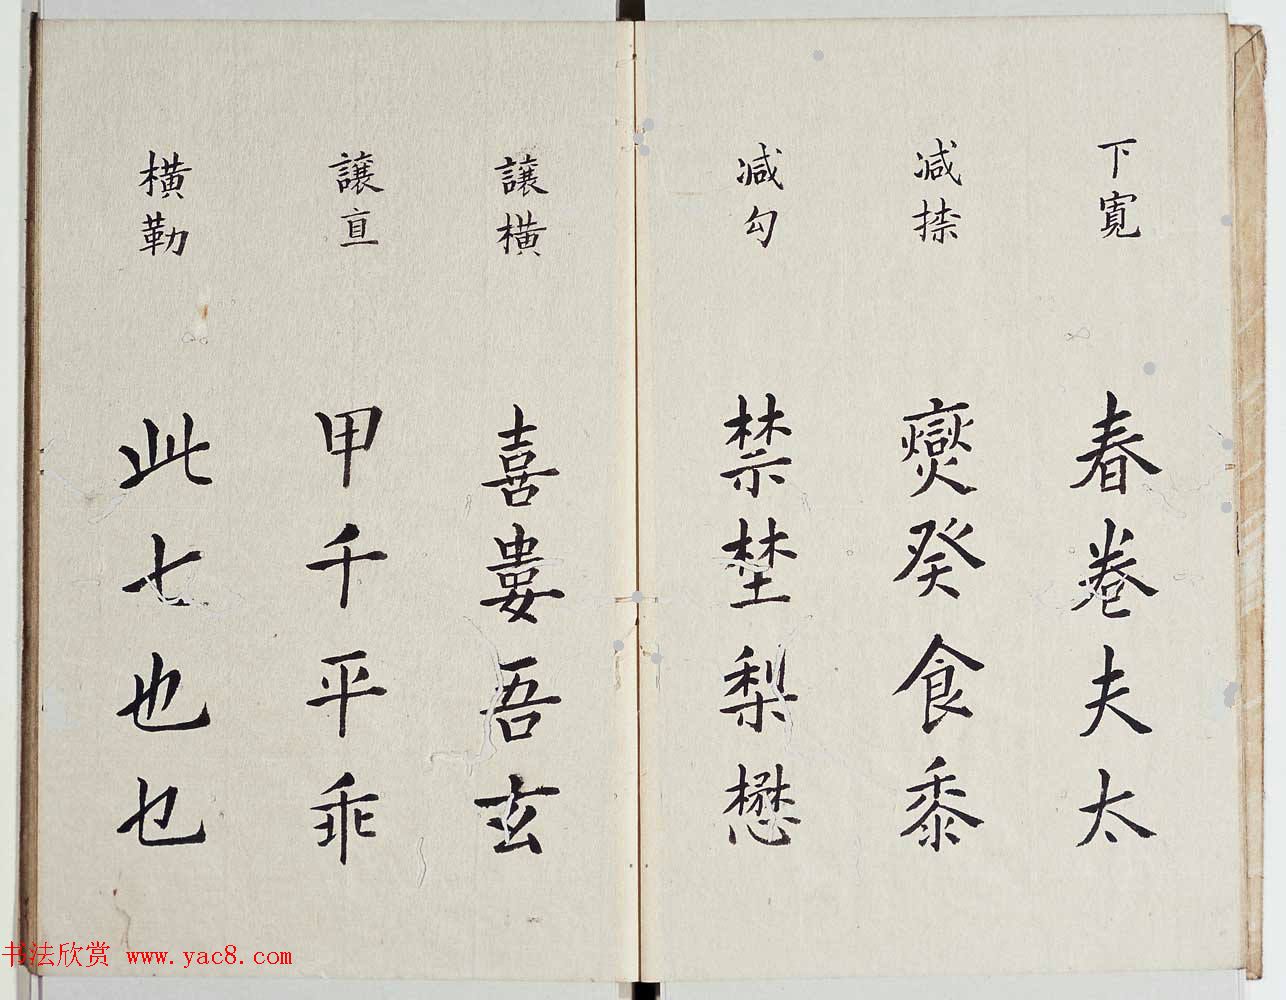 下寬
春卷夫太
减捺
燮癸食黍
减勾
禁埜梨懋
讓横
喜婁吾玄
讓直
甲千平乖
横勒
此七也乜
书法欣赏 www.yac8.com